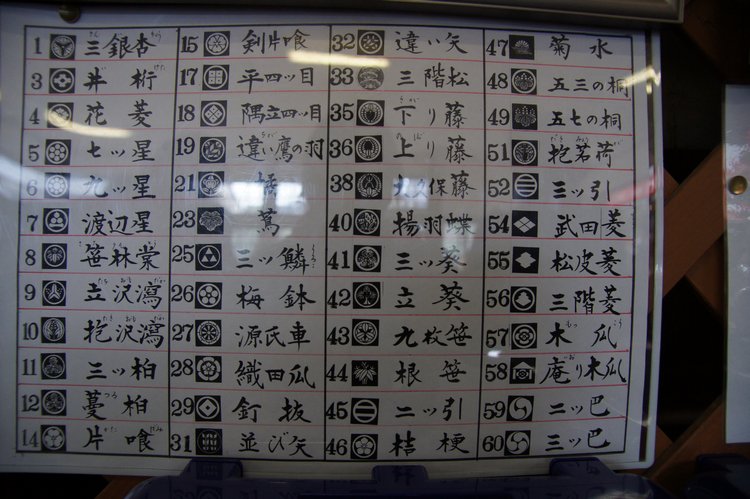 1 三銀杏
3 井桁
4 花菱
5 七ッ星
6 九ッ星
7 渡辺星
8 笹林棠
9 立沢瀉
10 抱沢瀉
11 三ッ柏
12 蔓柏
14 片喰
15 剣片喰
17 平四ッ目
18 隅立四ッ目
19 違い鷹の羽
21 橘
23 蔦
25 三ッ鱗
26 梅鉢
27 源氏車
28 織田瓜
29 釘抜
31 並び矢
32 違い矢
33 三階松
35 下り藤
36 上り藤
38 大久保藤
40 揚羽蝶
41 三ッ葵
42 立葵
43 九枚笹
44 根笹
45 二ッ引
46 桔梗
47 菊水
48 五三の桐
49 五七の桐
51 抱茗荷
52 三ッ引
54 武田菱
55 松皮菱
56 三階菱
57 木瓜
58 庵り木瓜
59 二ッ巴
60 三ッ巴